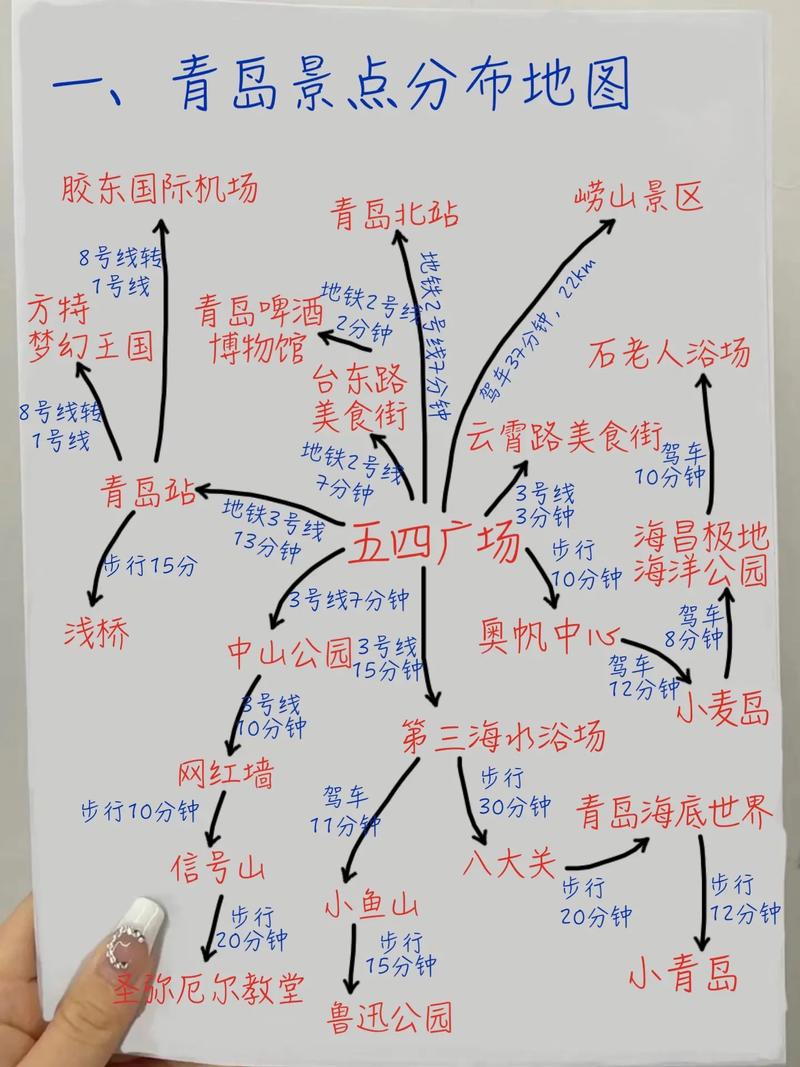 一、青岛景点分布地图
胶东国际机场
青岛北站
崂山景区
8号线转
1号线
方特
梦幻王国
青岛啤酒
博物馆
地铁2号线
2分钟
地铁2号线7分钟
驾车37分钟，22km
石老人浴场
台东路
美食街
8号线转
1号线
云霄路美食街
地铁2号线
7分钟
驾车
10分钟
青岛站
地铁3号线
13分钟
3号线
3分钟
五四广场
海昌极地
海洋公园
步行15分
步行
10分钟
3号线7分钟
浅桥
中山公园
3号线
15分钟
奥帆中心
驾车
8分钟
驾车
12分钟
小麦岛
3号线
10分钟
第三海水浴场
网红墙
步行10分钟
驾车
11分钟
步行
30分钟
青岛海底世界
信号山
八大关
小鱼山
步行
20分钟
步行
12分钟
步行
20分钟
步行
15分钟
圣弥厄尔教堂
鲁迅公园
小青岛